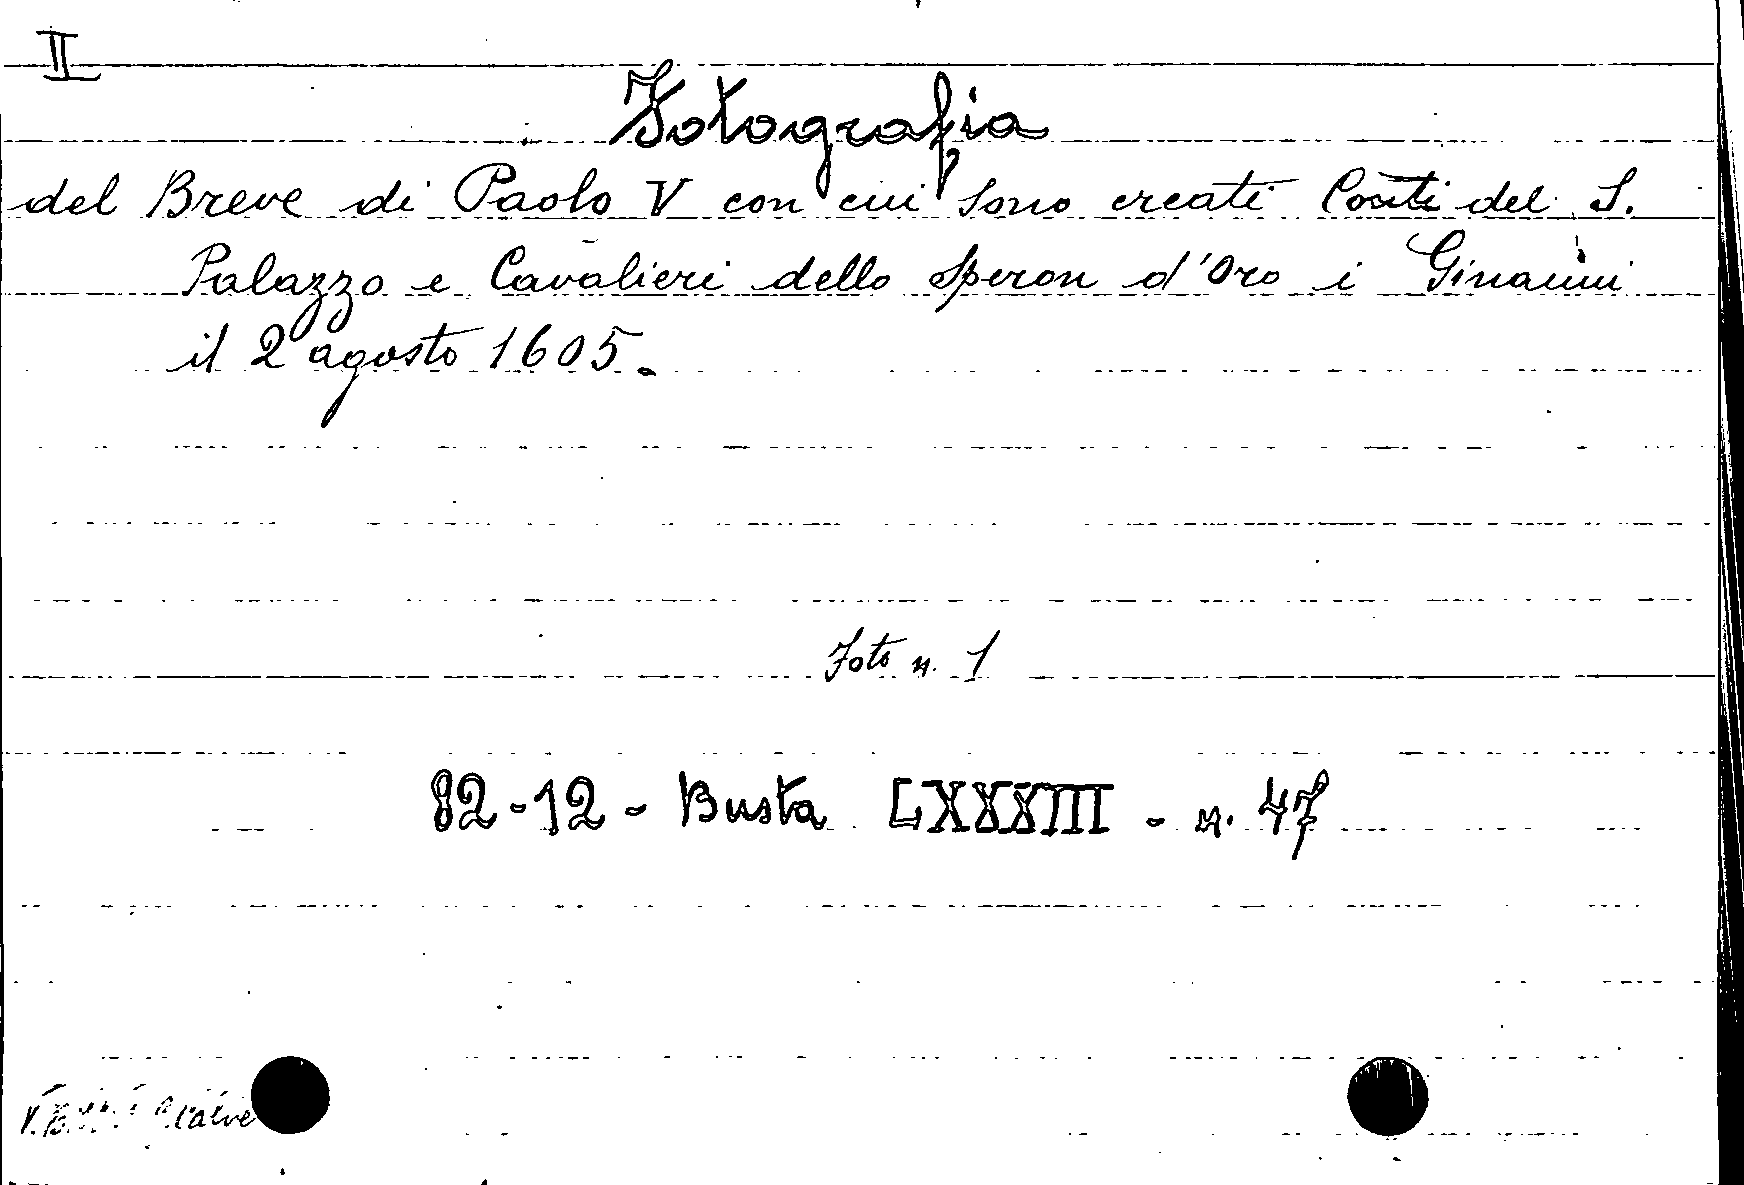 II
Fotografia
del Breve di Paolo V con cui sono creati Conti del S.
Palazzo e Cavalieri dello Speron d'Oro i Ginanni
il 2 agosto 1605.
Foto n. 1
82-12- Busta LXXXIII - n. 47